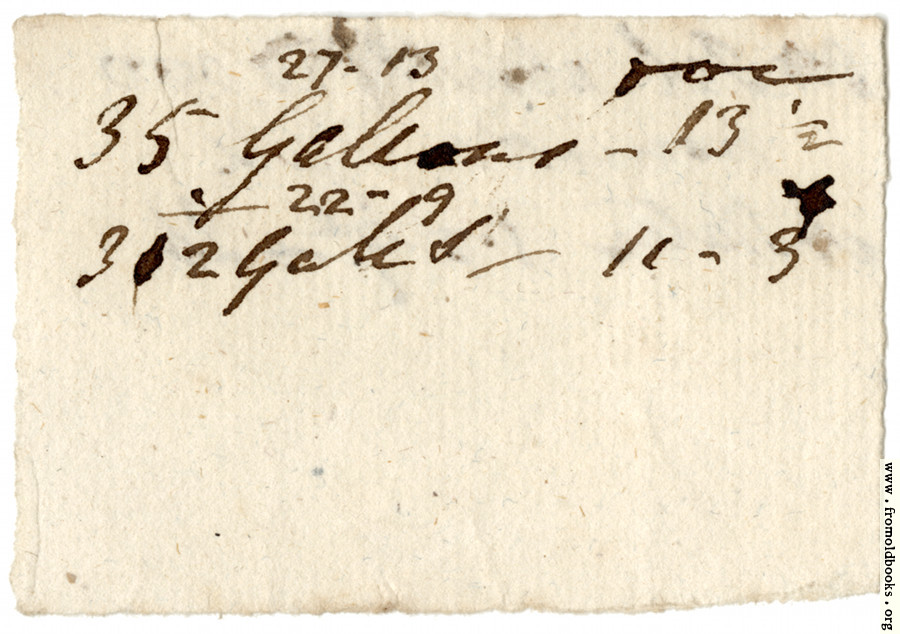 27 - 13
35 Gallons - 13 ½
22 - 9
312 Galls - 11 - 3
www.fromoldbooks.org